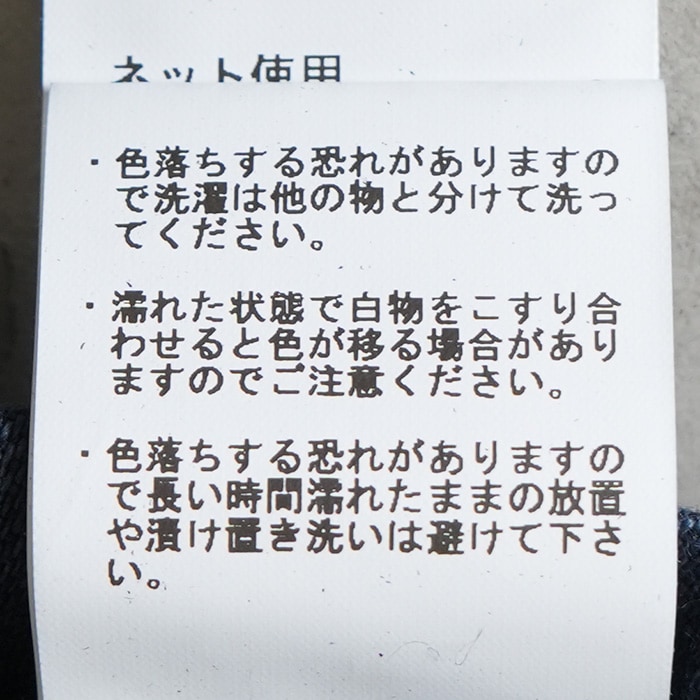 ネット使用
・色落ちする恐れがありますの
で洗濯は他の物と分けて洗っ
てください。
・濡れた状態で白物をこすり合
わせると色が移る場合があり
ますのでご注意ください。
・色落ちする恐れがありますの
で長い時間濡れたままの放置
や漬け置き洗いは避けて下さ
い。